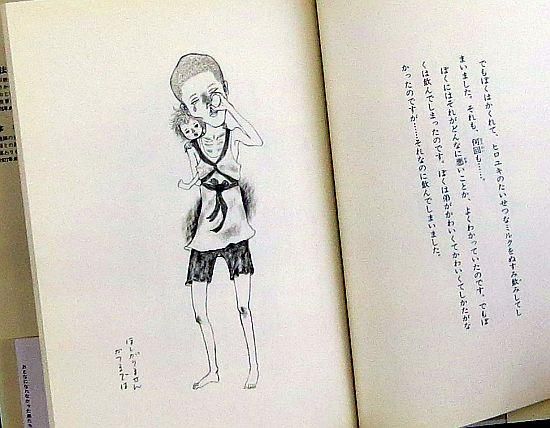 でもぼくはかくれて、ヒロユキのたいせつなミルクをぬすみ飲みしてし
まいました。それも、何回も……。
ぼくにはそれがどんなに悪いことか、よくわかっていたのです。でもぼ
くは飲んでしまったのです。ぼくは弟がかわいくてかわいくてしかたがな
かったのですが……それなのに飲んでしまいました。
ほしがりません
かつまでは
おとなになれなかった弟たち